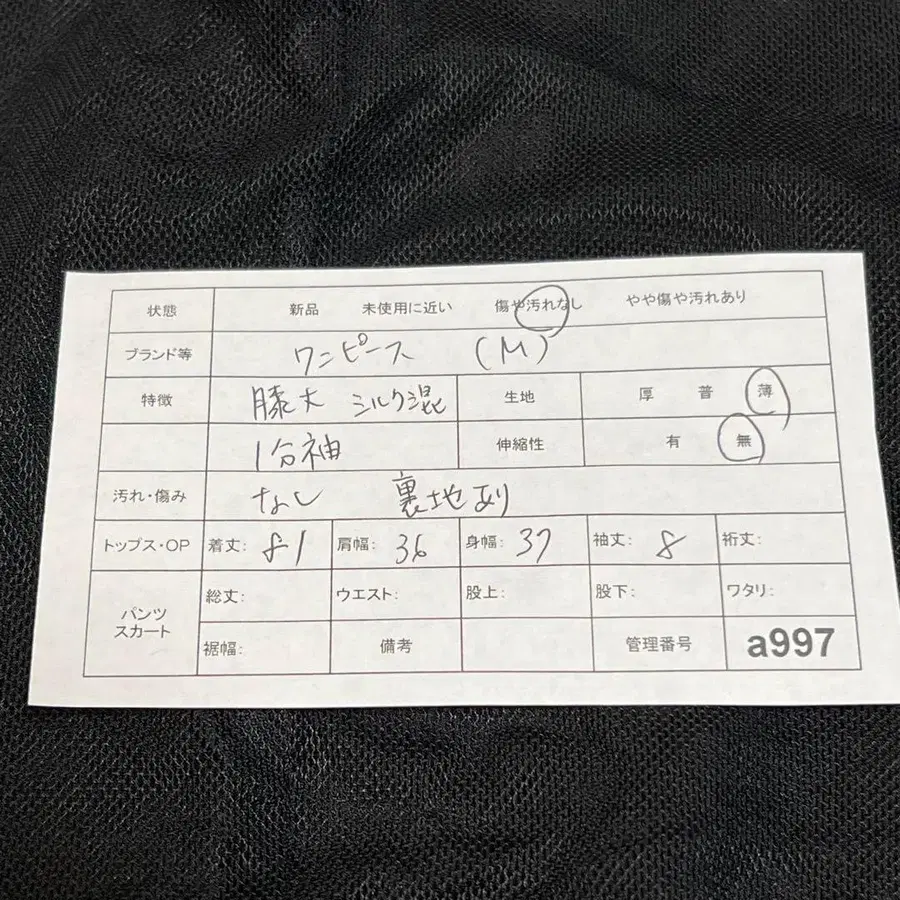 状態 新品 未使用に近い 傷や汚れなし やや傷や汚れあり
ブランド等 ワンピース (M)
特徴 膝丈 シルク混 生地 厚 普 薄
1分袖 伸縮性 有 無
汚れ・傷み なし 裏地あり
トップス・OP 着丈: 81 肩幅: 36 身幅: 37 袖丈: 8 裄丈:
パンツ スカート 総丈: ウエスト: 股上: 股下: ワタリ:
裾幅: 備考 管理番号 a997